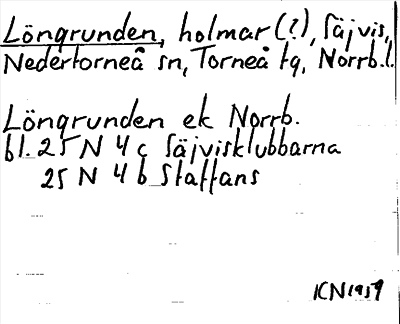 Löngrunden, holmar (?), Säjvis,
Nedertorneå sn, Torneå tg, Norrb.l.
Löngrunden ek Norrb.
bl. 25 N 4 c Säjvisklubbarna
25 N 4 b Staffans
KN 1959